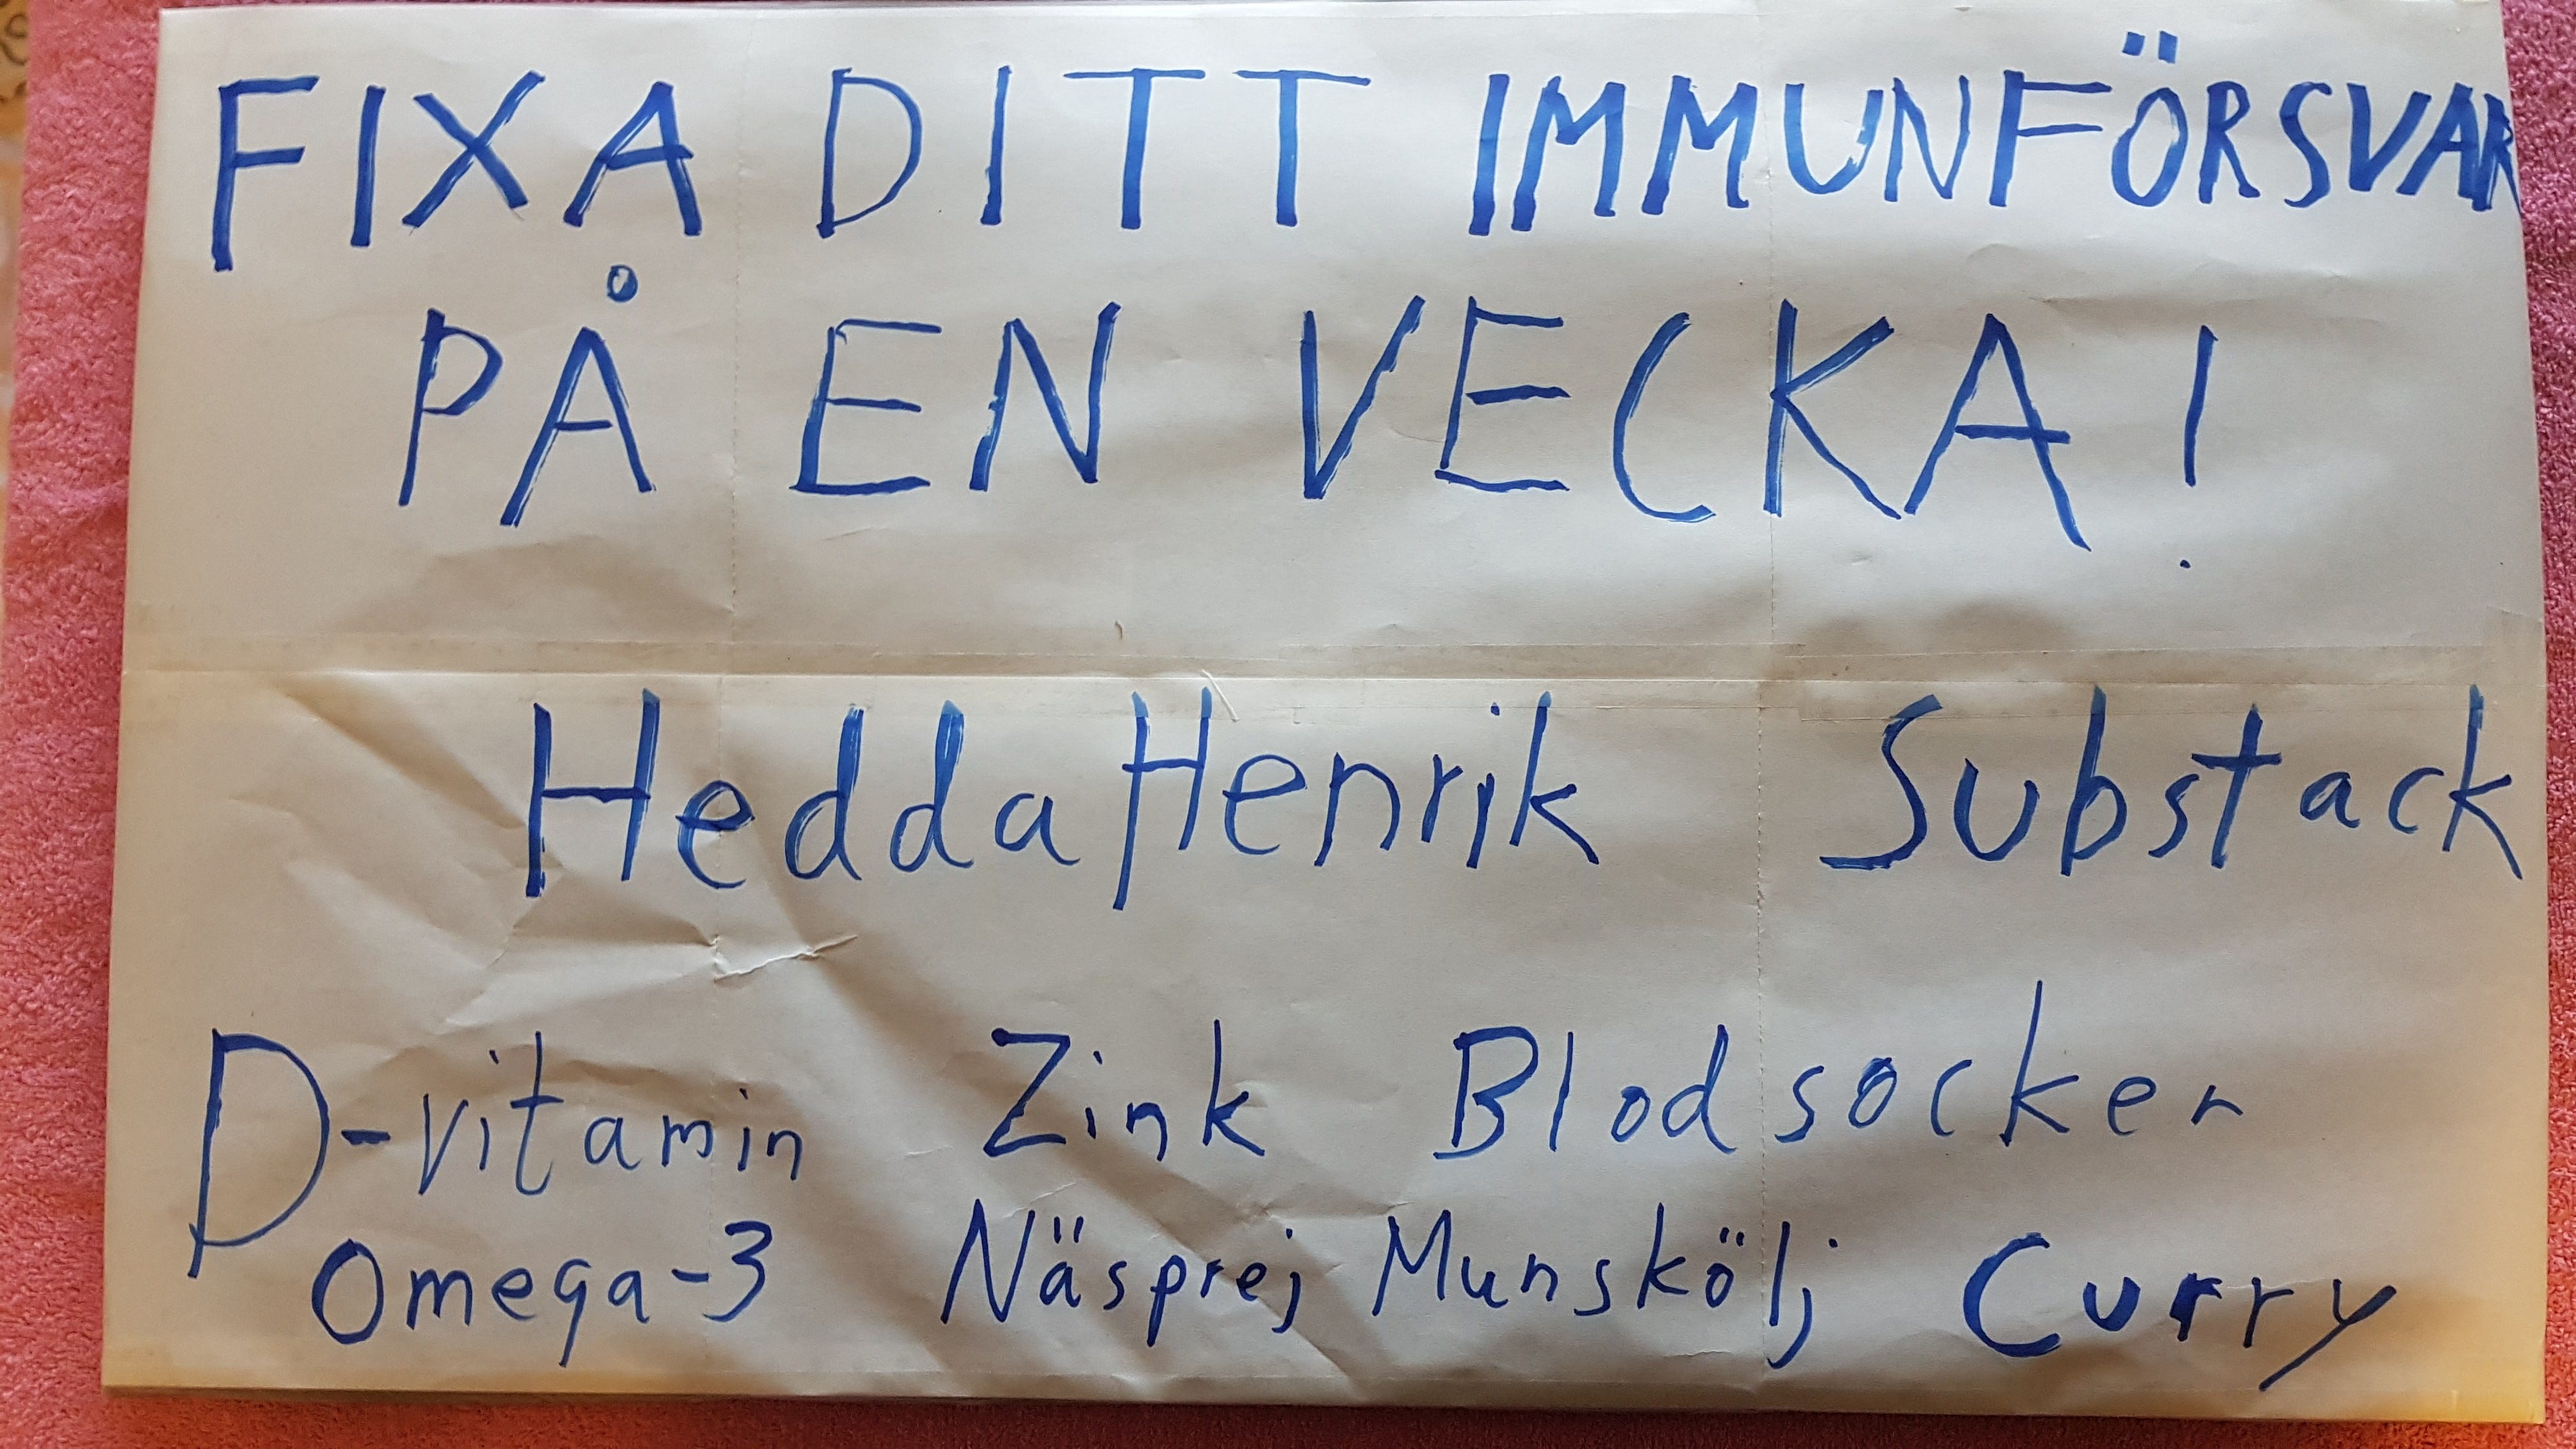 FIXA DITT IMMUNFÖRSVAR
PÅ EN VECKA!
HeddaHenrik Substack
D-vitamin Zink Blodsocker
Omega-3 Näsprej Munskölj Curry